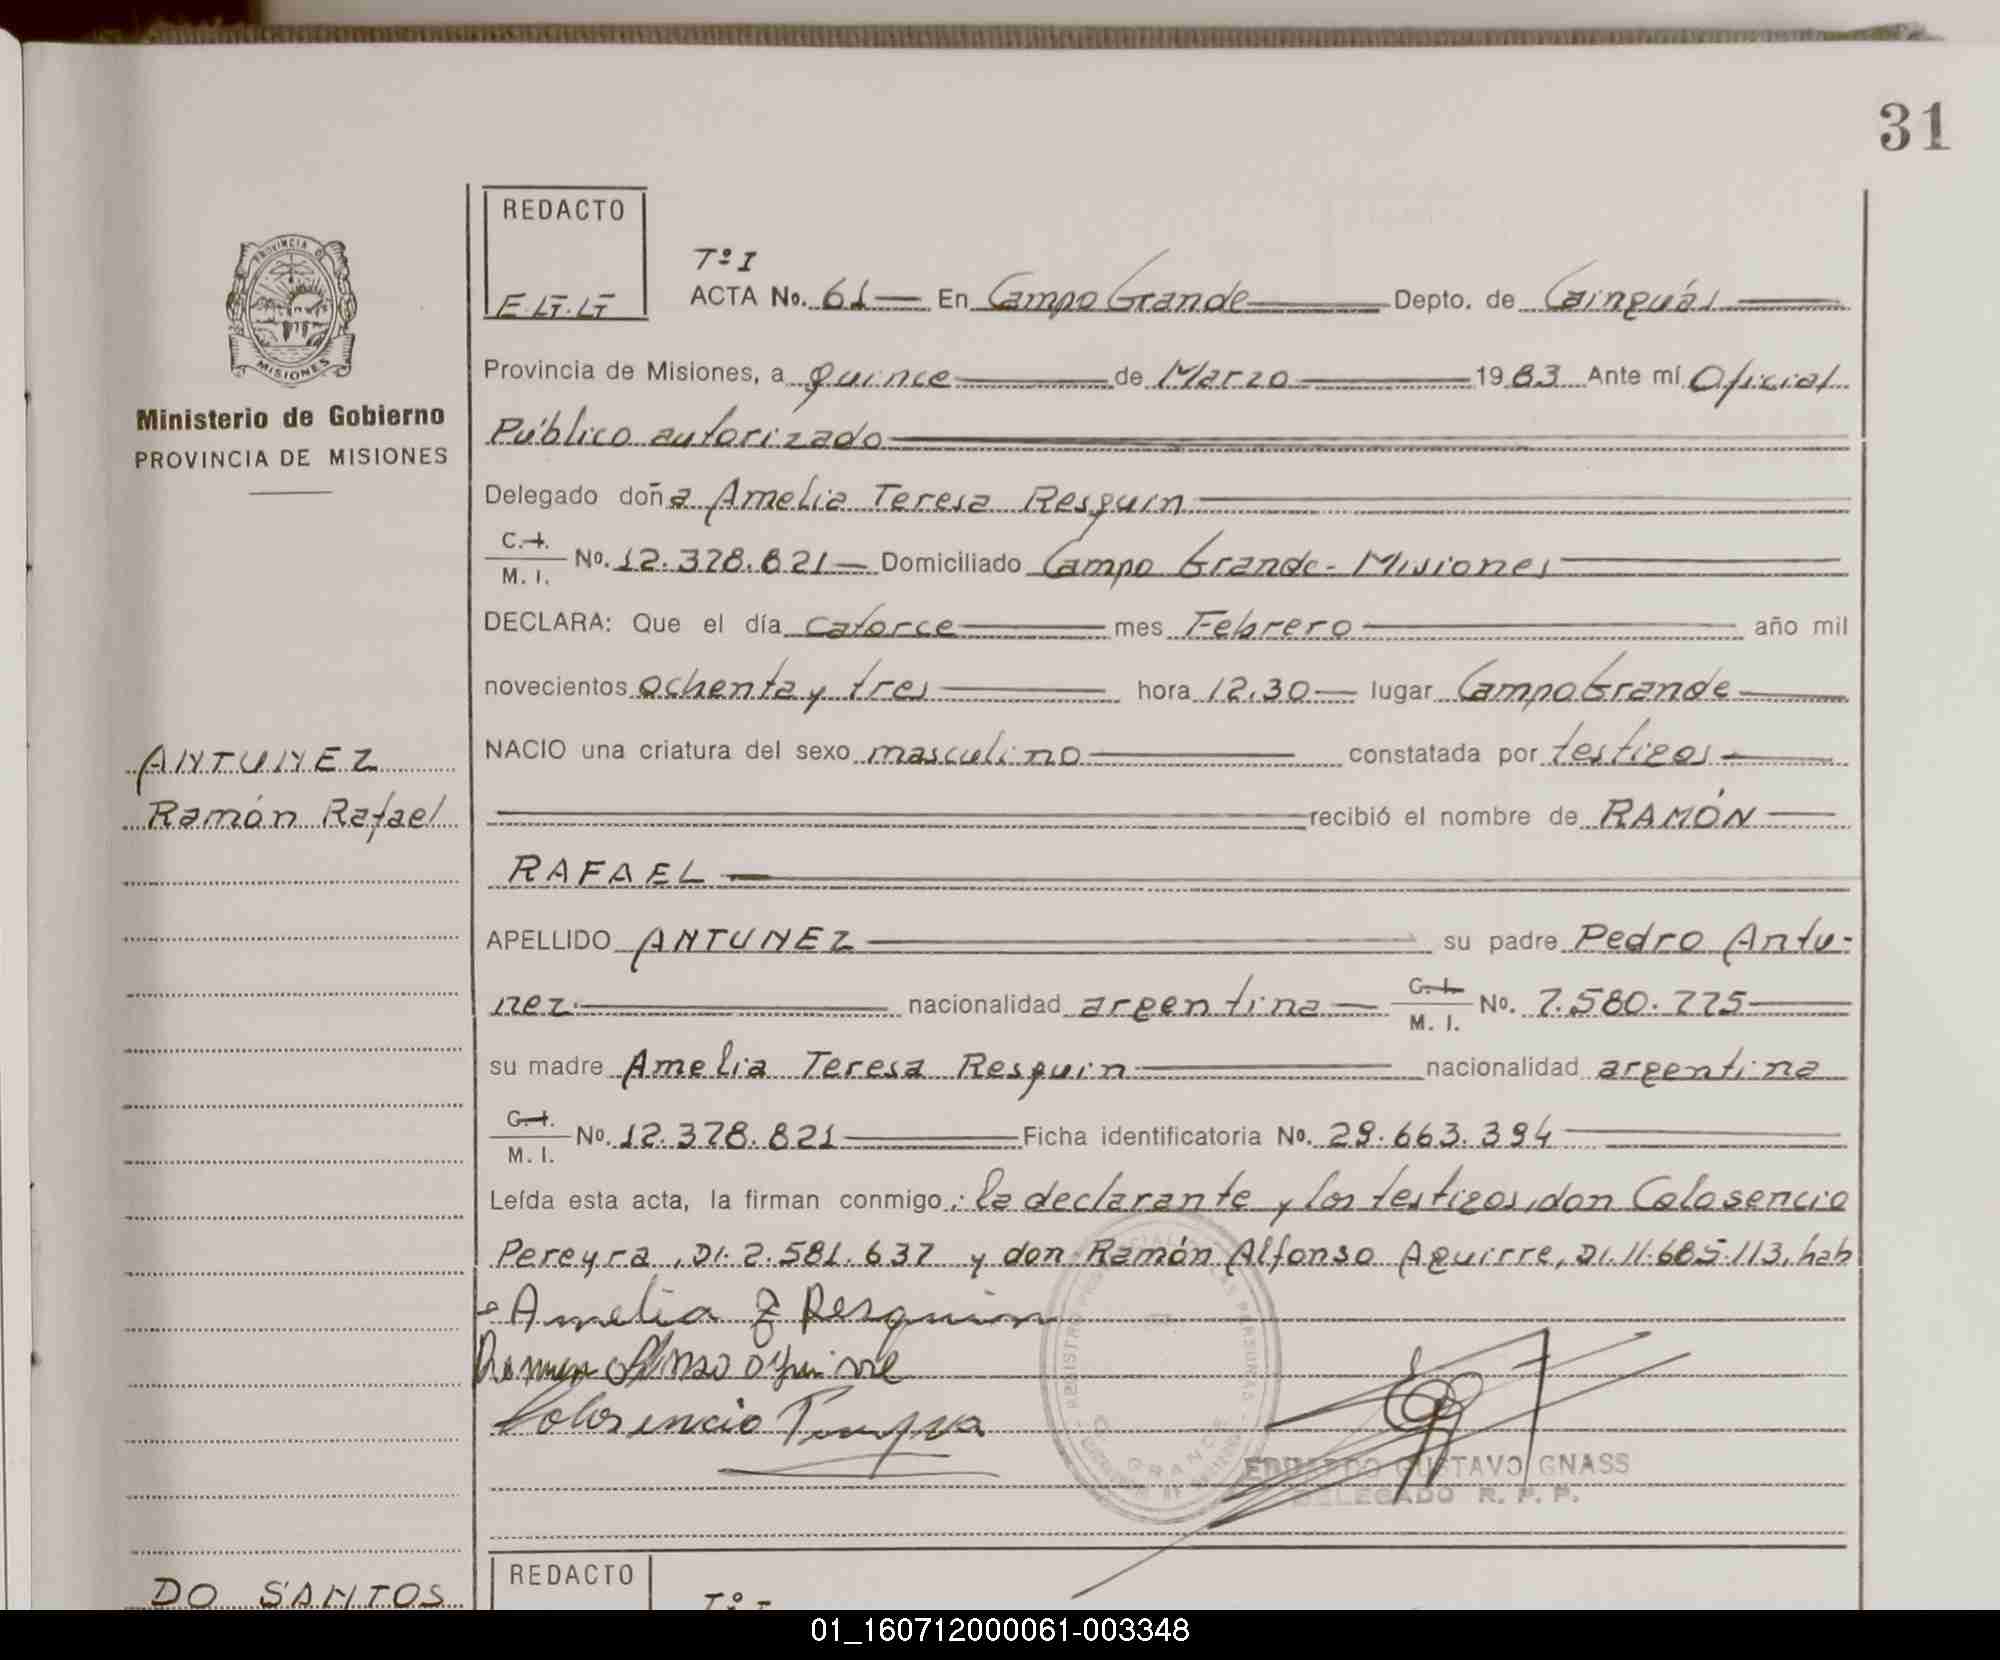 31
REDACTO
E.G.G
PROVINCIA D
MISIONES
Ministerio de Gobierno
PROVINCIA DE MISIONES
Tº I
ACTA No. 61 En Campo Grande Depto. de Cainguás
Provincia de Misiones, a quince de Marzo 1983 Ante mí Oficial
Público autorizado
Delegado doña Amelia Teresa Resquin
C.I. M. I. No. 12.378.821 Domiciliado Campo Grande - Misiones
DECLARA: Que el día catorce mes Febrero año mil
novecientos ochenta y tres hora 12.30 lugar Campo Grande
NACIO una criatura del sexo masculino constatada por testigos
recibió el nombre de RAMÓN
RAFAEL
ANTUNEZ
Ramón Rafael
APELLIDO ANTUNEZ su padre Pedro Antu-
nez nacionalidad argentina C.I. M. I. No. 7.580.775
su madre Amelia Teresa Resquin nacionalidad argentina
C.I. M. I. No. 12.378.821 Ficha identificatoria No. 29.663.394
Leída esta acta, la firman conmigo: la declarante y los testigos, don Colosencio
Pereyra, DI. 2.581.637 y don Ramón Alfonso Aguirre, DI. 11.685.113, hab
Amelia T Resquin
Ramon Alfonso Aguirre
Colosencio Pereyra
EDUARDO GUSTAVO GNASS
DELEGADO R. P. P.
DO SANTOS
REDACTO
Tº I
01_160712000061-003348